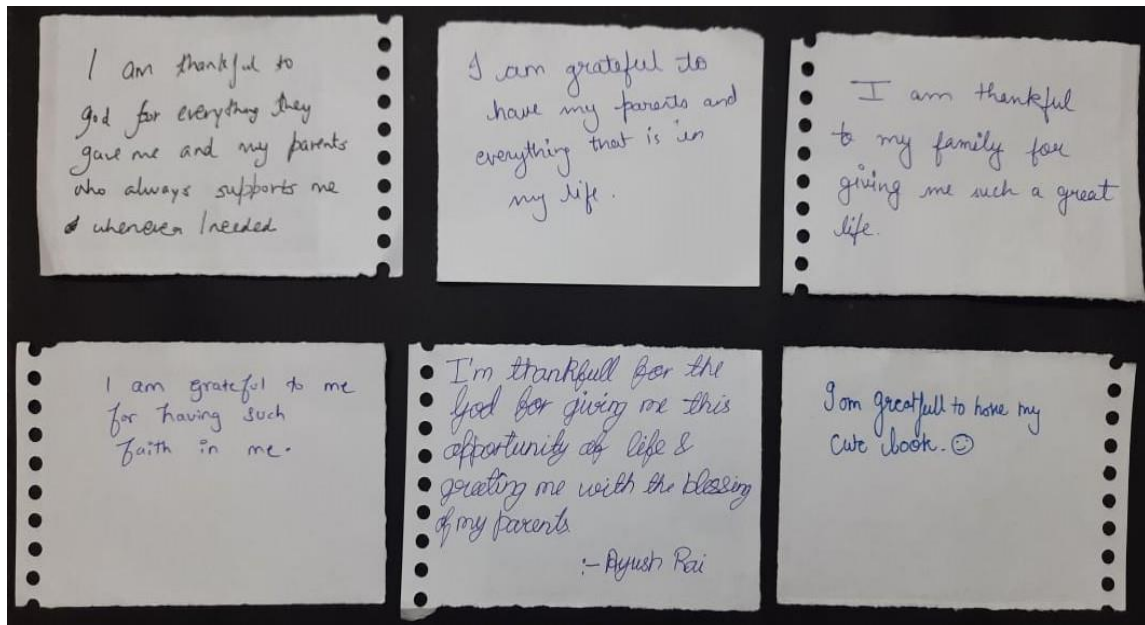 I am thankful to
god for everything they
gave me and my parents
who always supports me
whenever I needed
I am grateful to
have my parents and
everything that is in
my life.
I am thankful
to my family for
giving me such a great
life.
I am grateful to me
for having such
faith in me.
I'm thankfull for the
God for giving me this
opportunity of life &
greeting me with the blessing
of my parents
:- Ayush Rai
I am greatfull to have my
cute book. ☺